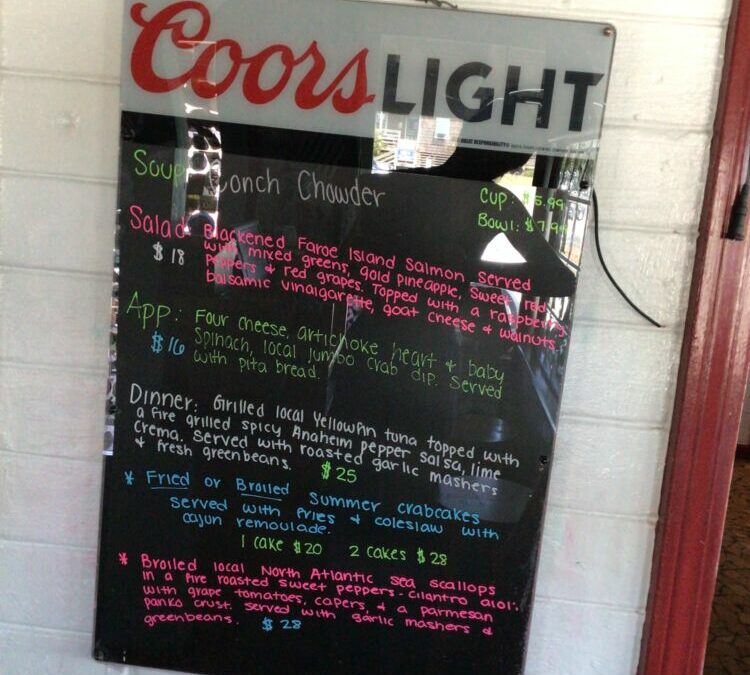 Coors LIGHT
GREAT RESPONSIBILITY®
Soup: Conch Chowder
Cup: $5.99
Bowl: $7.99
Salad: Blackened Faroe Island Salmon served
$18 with mixed greens, gold pineapple, sweet red
peppers & red grapes. Topped with a raspberry
balsamic vinaigarette, goat cheese & walnuts.
App: Four cheese, artichoke heart & baby
$16 Spinach, local jumbo crab dip. Served
with pita bread.
Dinner: Grilled local Yellowfin tuna topped with
a fire grilled spicy Anaheim pepper salsa, lime
crema. Served with roasted garlic mashers
& fresh greenbeans. $25
* Fried or Broiled Summer crabcakes
served with fries & coleslaw with
cajun remoulade.
1 cake $20 2 cakes $28
* Broiled local North Atlantic sea scallops
in a fire roasted sweet peppers - cilantro aioli
with grape tomatoes, capers, & a parmesan
panko crust. Served with garlic mashers &
greenbeans. $28